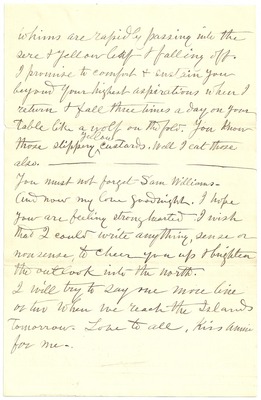 whims are rapidly passing into the
sere & yellow leaf & falling off.
I promise to comfort & sustain you
beyond your highest aspirations when I
return & fall three times a day on your
table like a wolf on the fold. You know
those slippery yellow custards. Well I eat those
also.
You must not forget Sam Williams.
And now my love goodnight. I hope
you are feeling strong hearted I wish
that I could write anything, sense or
nonsense, to cheer you up & brighten
the outlook into the north.
I will try to say one more line
or two when we reach the Islands
tomorrow. Love to all, Kiss Annie
for me.